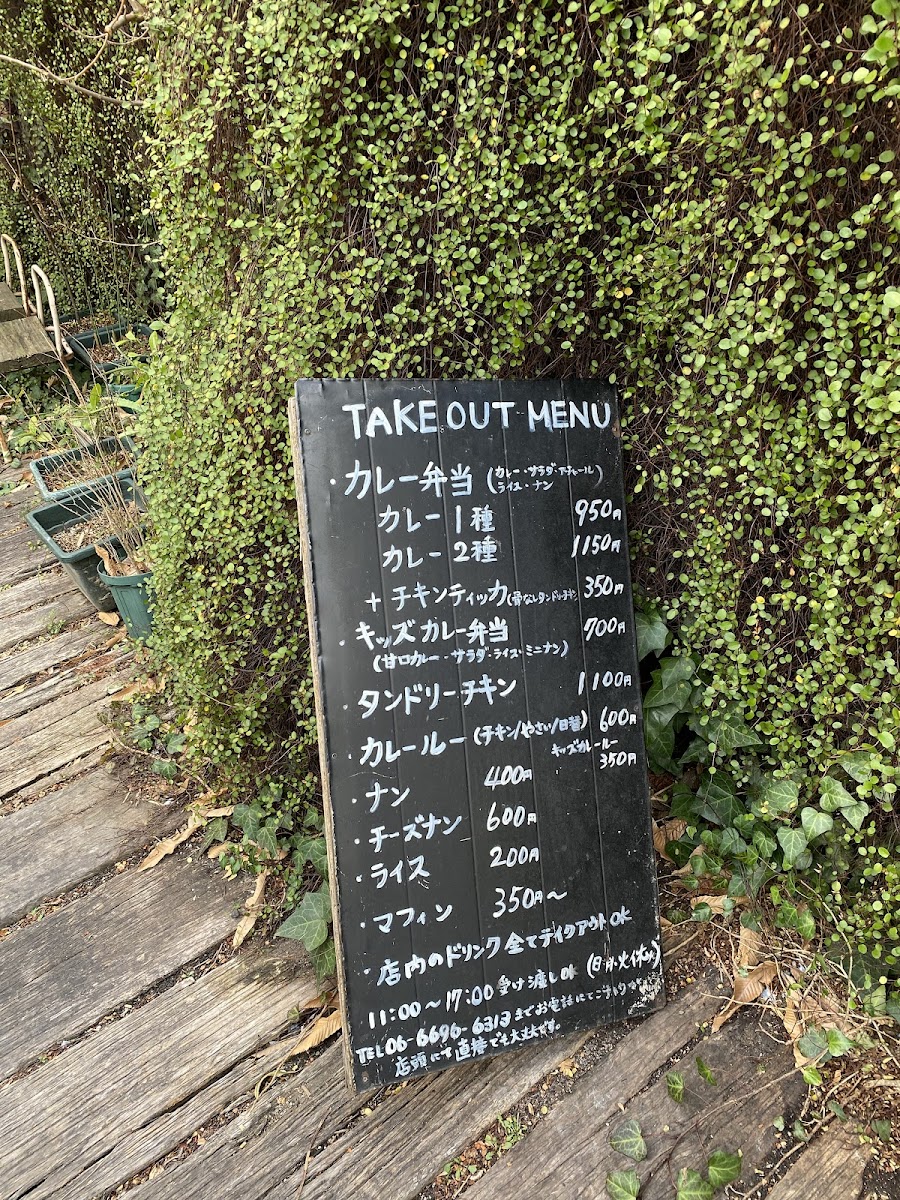 TAKE OUT MENU
・カレー弁当 (カレー・サラダ・アチャール
ライス・ナン)
カレー1種 950円
カレー2種 1150円
+ チキンティッカ(骨なしタンドリーチキン) 350円
・キッズカレー弁当 700円
(甘口カレー・サラダ・ライス・ミニナン)
・タンドリーチキン 1100円
・カレールー (チキン/やさい/日替) 600円
キッズカレールー
350円
・ナン 400円
・チーズナン 600円
・ライス 200円
・マフィン 350円~
・店内のドリンク全てテイクアウトok
11:00~17:00受け渡しok (日・月・火休み)
TEL06-6696-6313までお電話にて
店頭にて直接でも大丈夫です。